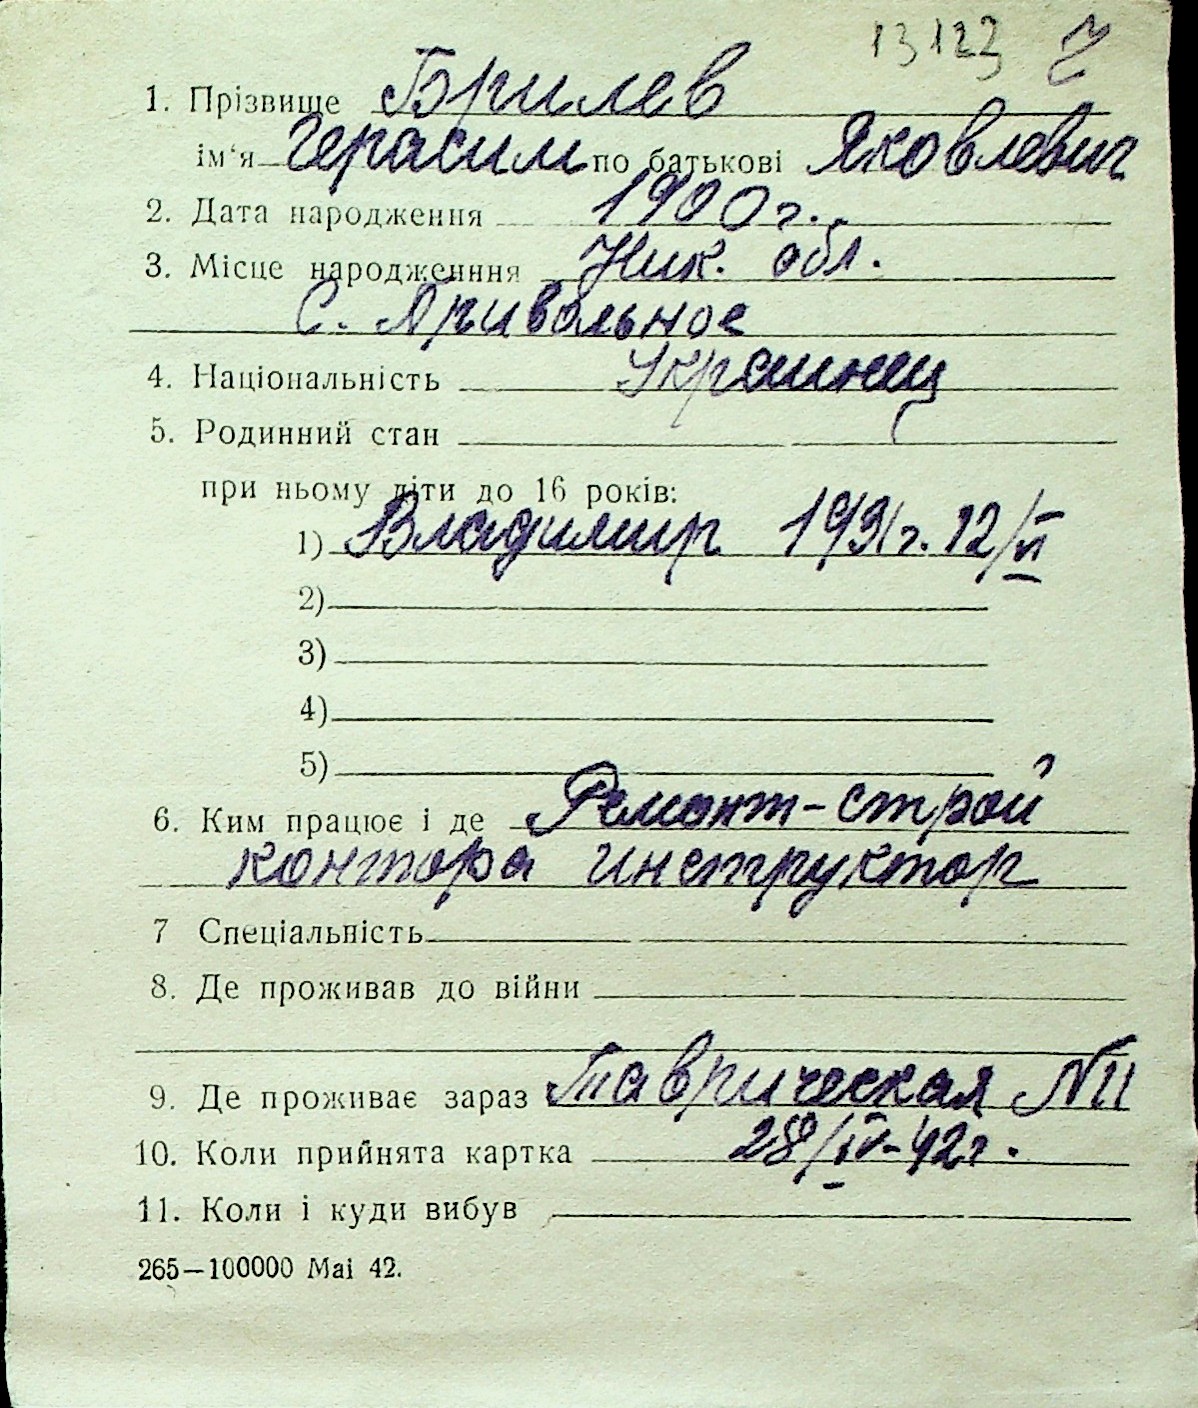 13123
1. Прізвище Брилев
ім'я Герасим по батькові Яковлевич
2. Дата народження 1900 г.
3. Місце народженння Ник. обл.
С. Привольное
4. Національність Украинец
5. Родинний стан
при ньому діти до 16 років:
1) Владимир 1931 г. 12/VI
2)
3)
4)
5)
6. Ким працює і де Ремонт-строй
контора инструктор
7 Спеціальність
8. Де проживав до війни
9. Де проживає зараз Таврическая N11
10. Коли прийнята картка 28/IV-42 г.
11. Коли і куди вибув
265—100000 Маі 42.